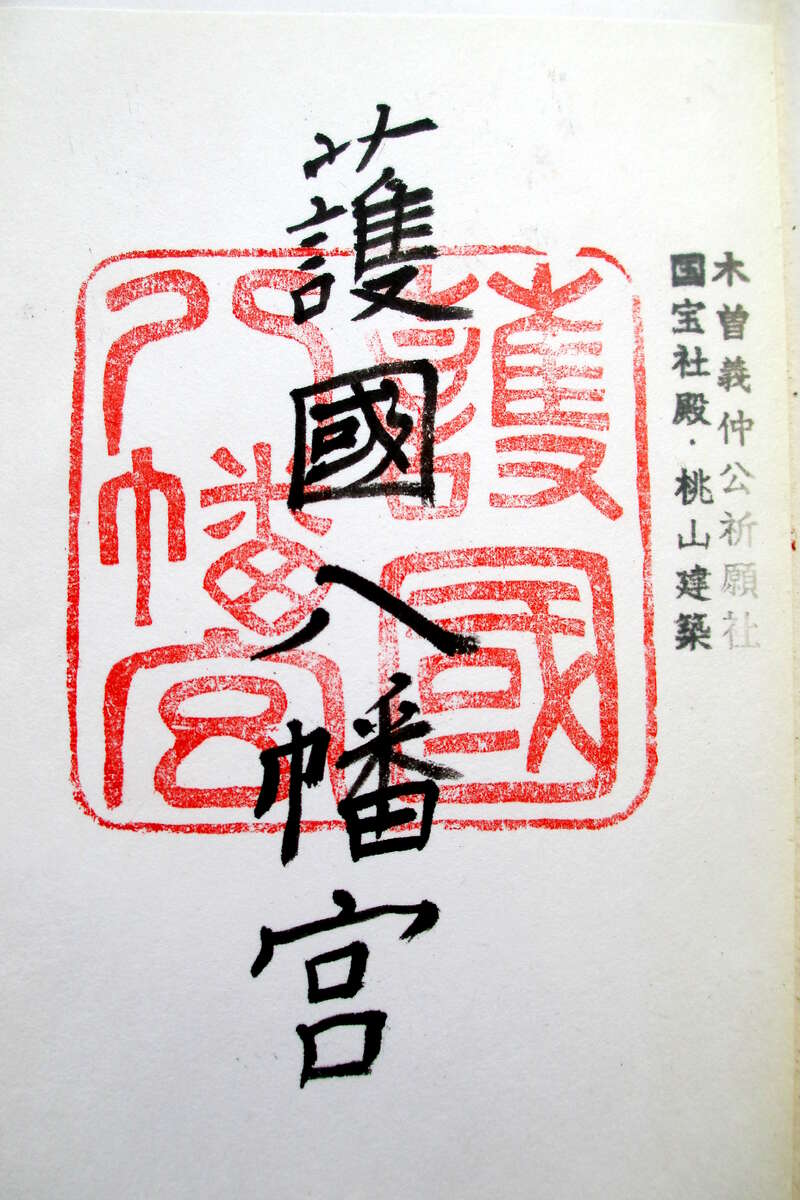 木曽義仲公祈願社
国宝社殿・桃山建築
護國八幡宮
護國
八幡宮